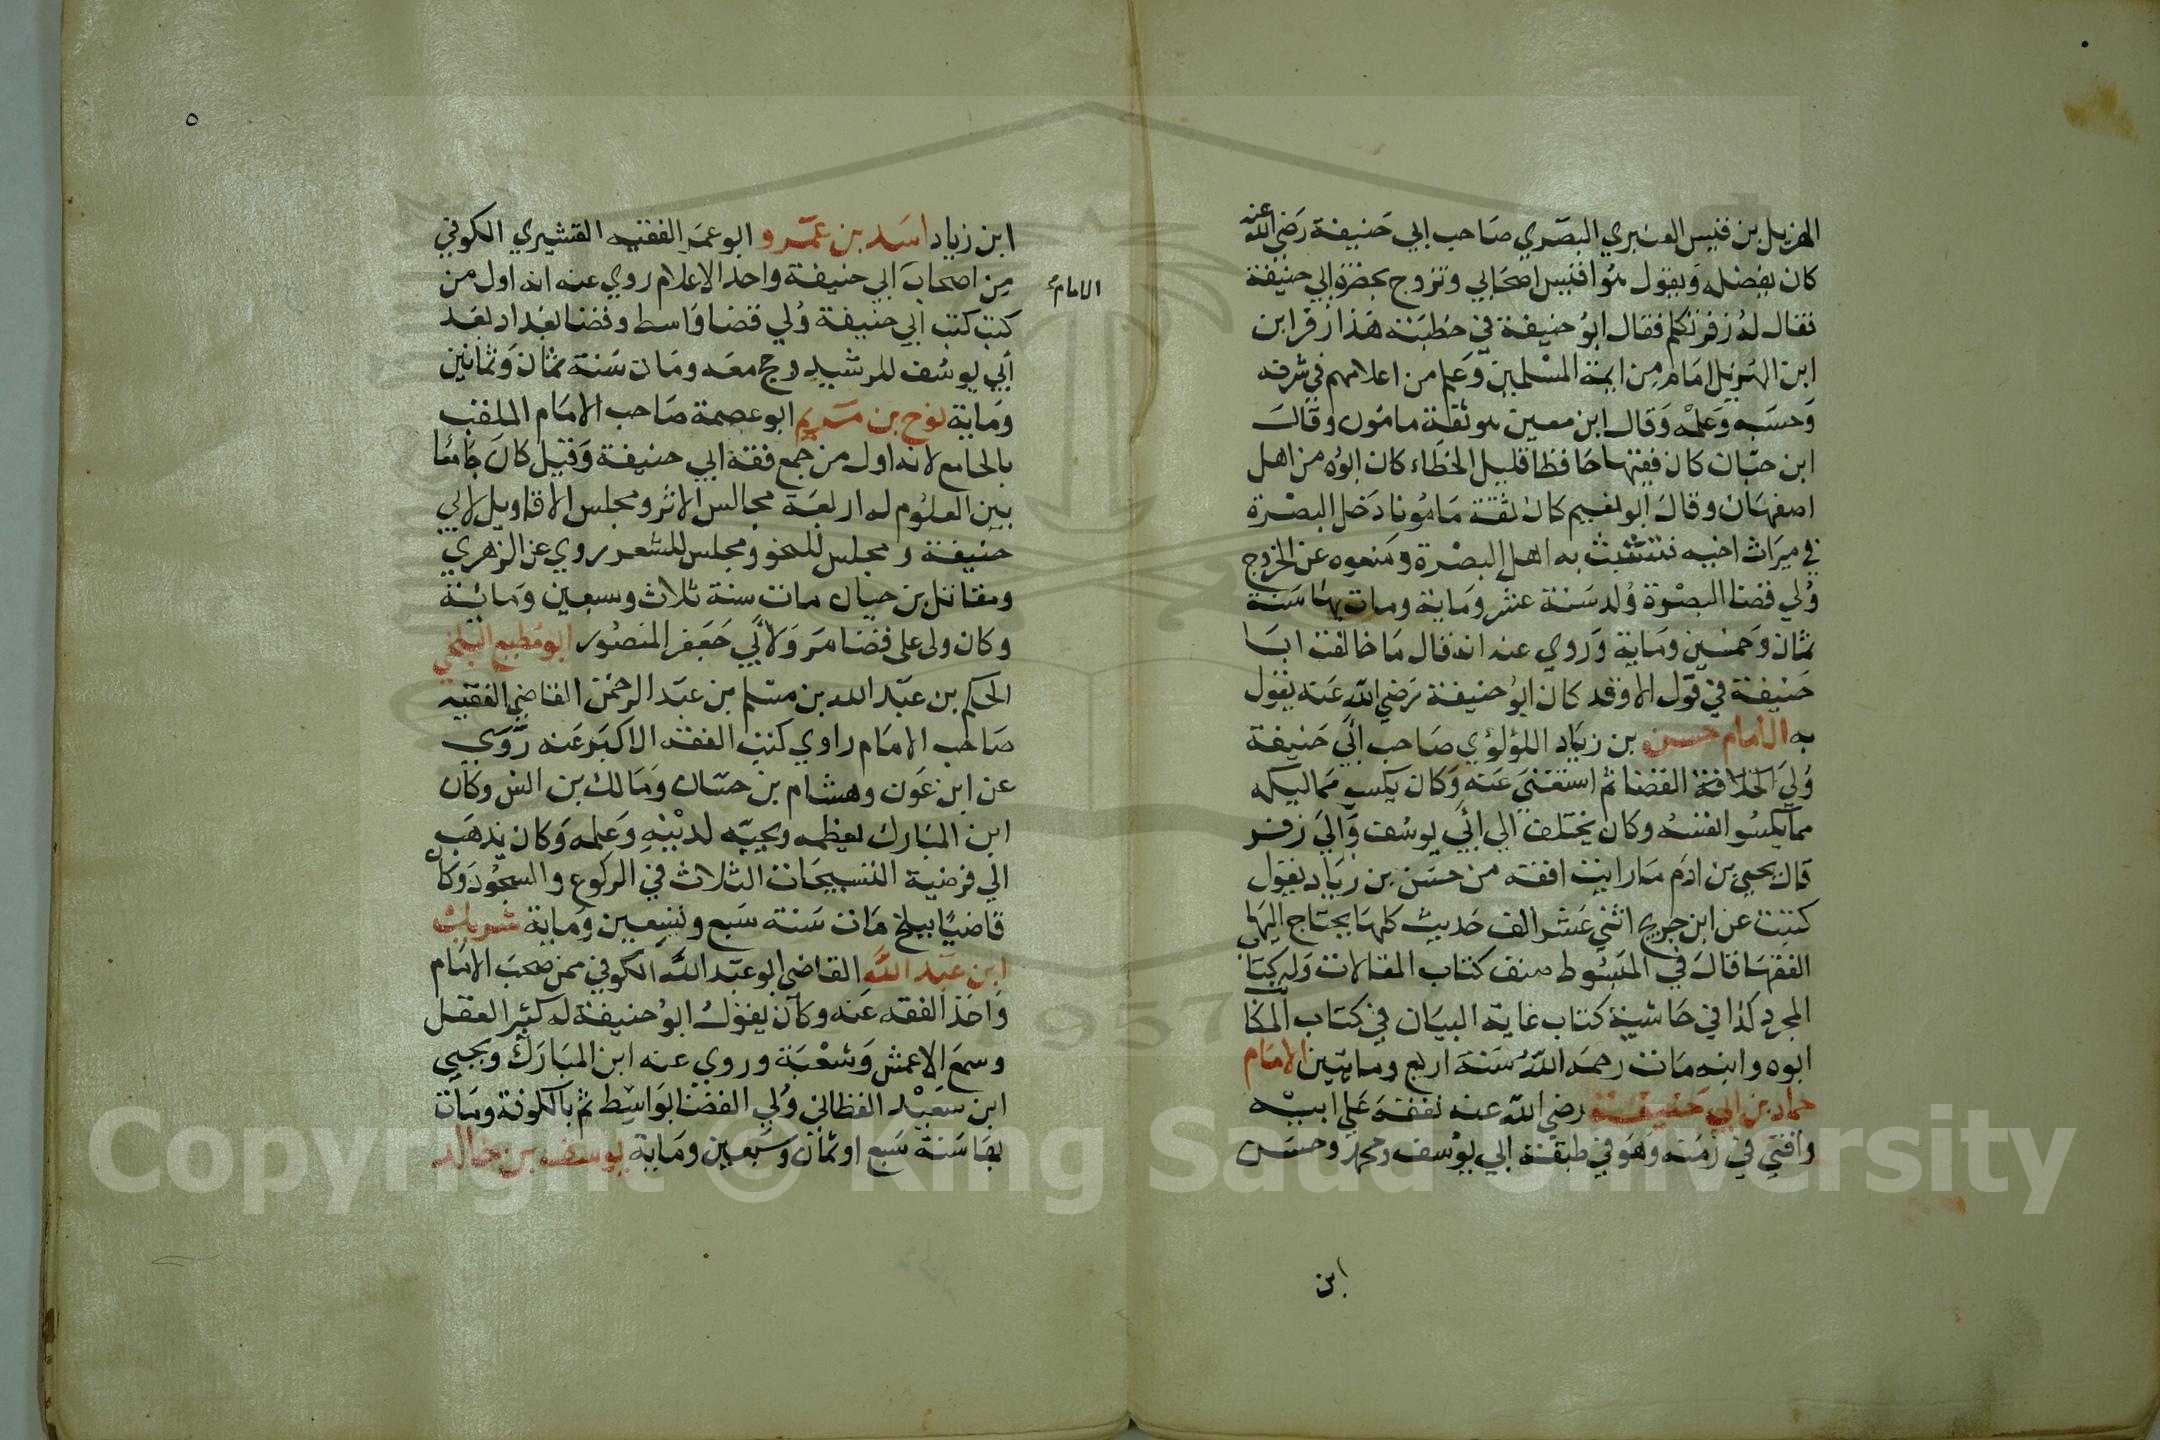 الهزيل بن قيس العنبري البصري صاحب ابي حنيفة رضي الله عنه
كان يفضله ويقول هو اقيس اصحابي وتزوج بحضرة ابي حنيفة
فقال له زفر تكلم فقال ابو حنيفة في خطبته هذا زفر ابن
ابن الهزيل امام من ايمة المسلمين وعلم من اعلامهم في شرفه
وحسبه وعلمه وقال ابن معين هو ثقة مامون وقال
ابن حبان كان فقيها حافظا قليل الخطاء كان ابوه من اهل
اصفهان وقال ابو نعيم كان ثقة مامونا دخل البصرة
في ميراث اخيه فتشبث به اهل البصرة ومنعوه عن الخروج
ولي قضا البصرة ولد سنة عشر وماية ومات بها سنة
ثمان وخمسين وماية وروي عنه انه قال ما خالفت ابا
حنيفة في قول الا وقد كان ابو حنيفة رضي الله عنه يقول
به الامام حسن بن زياد اللؤلؤي صاحب ابي حنيفة
ولي الخلافة القضا ثم استعفى عنه وكان يكسو مماليكه
مما يكسو نفسه وكان يختلف الي ابي يوسف والي زفر
قال يحيي بن ادم ما رايت افقه من حسن بن زياد يقول
كتبت عن ابن جريج اثني عشر الف حديث كلها يحتاج اليها
الفقها قال في المبسوط صنف كتاب المقالات وله كتاب
المجرد كذا في حاشية كتاب غاية البيان في كتاب
ابوه وابنه مات رحمه الله سنة اربع ومايتين الامام
حماد بن ابي حنيفة رضي الله عنه تفقه علي ابيه
وافتي في زمنه وهو في طبقة ابي يوسف ومحمد وحسن
ابن
٥
ابن زياد اسد بن عمرو ابو عمر الفقيه القشيري الكوفي
من اصحاب ابي حنيفة واحد الاعلام روي عنه انه اول من
الامام
كتب كتب ابي حنيفة ولي قضا واسط وقضا بغداد بعد
ابي يوسف للرشيد وحج معه ومات سنة ثمان وثمانين
وماية نوح بن مريم ابو عصمة صاحب الامام الملقب
بالجامع لانه اول من جمع فقه ابي حنيفة وقيل كان جامعا
بين العلوم له اربعة مجالس الاثر ومجلس الاقاويل لابي
حنيفة ومجلس للنحو ومجلس للشعر روي عن الزهري
ومقاتل بن حيان مات سنة ثلاث وسبعين وماية
وكان ولي علي قضا مرو لابي جعفر المنصور ابو مطيع البلخي
الحكم بن عبد الله بن مسلم بن عبد الرحمن القاضي الفقيه
صاحب الامام راوي كتب الفقه الاكبر عنه روي
عن ابن عون وهشام بن حسان ومالك بن انس وكان
ابن المبارك يعظمه ويحبه لدينه وعلمه وكان يذهب
الي فرضية التسبيحات الثلاث في الركوع والسجود وكان
قاضيا ببلخ مات سنة سبع وتسعين وماية شريك
ابن عبد الله القاضي ابو عبد الله الكوفي ممن صحب الامام
واخذ الفقه عنه وكان يقول ابو حنيفة له كثير العقل
وسمع الاعمش وشعبة وروي عنه ابن المبارك ويحيي
ابن سعيد القطان وولي القضا بواسط ثم بالكوفة ومات
بها سنة سبع او ثمان وسبعين وماية يوسف بن خالد
Copyright © King Saud University